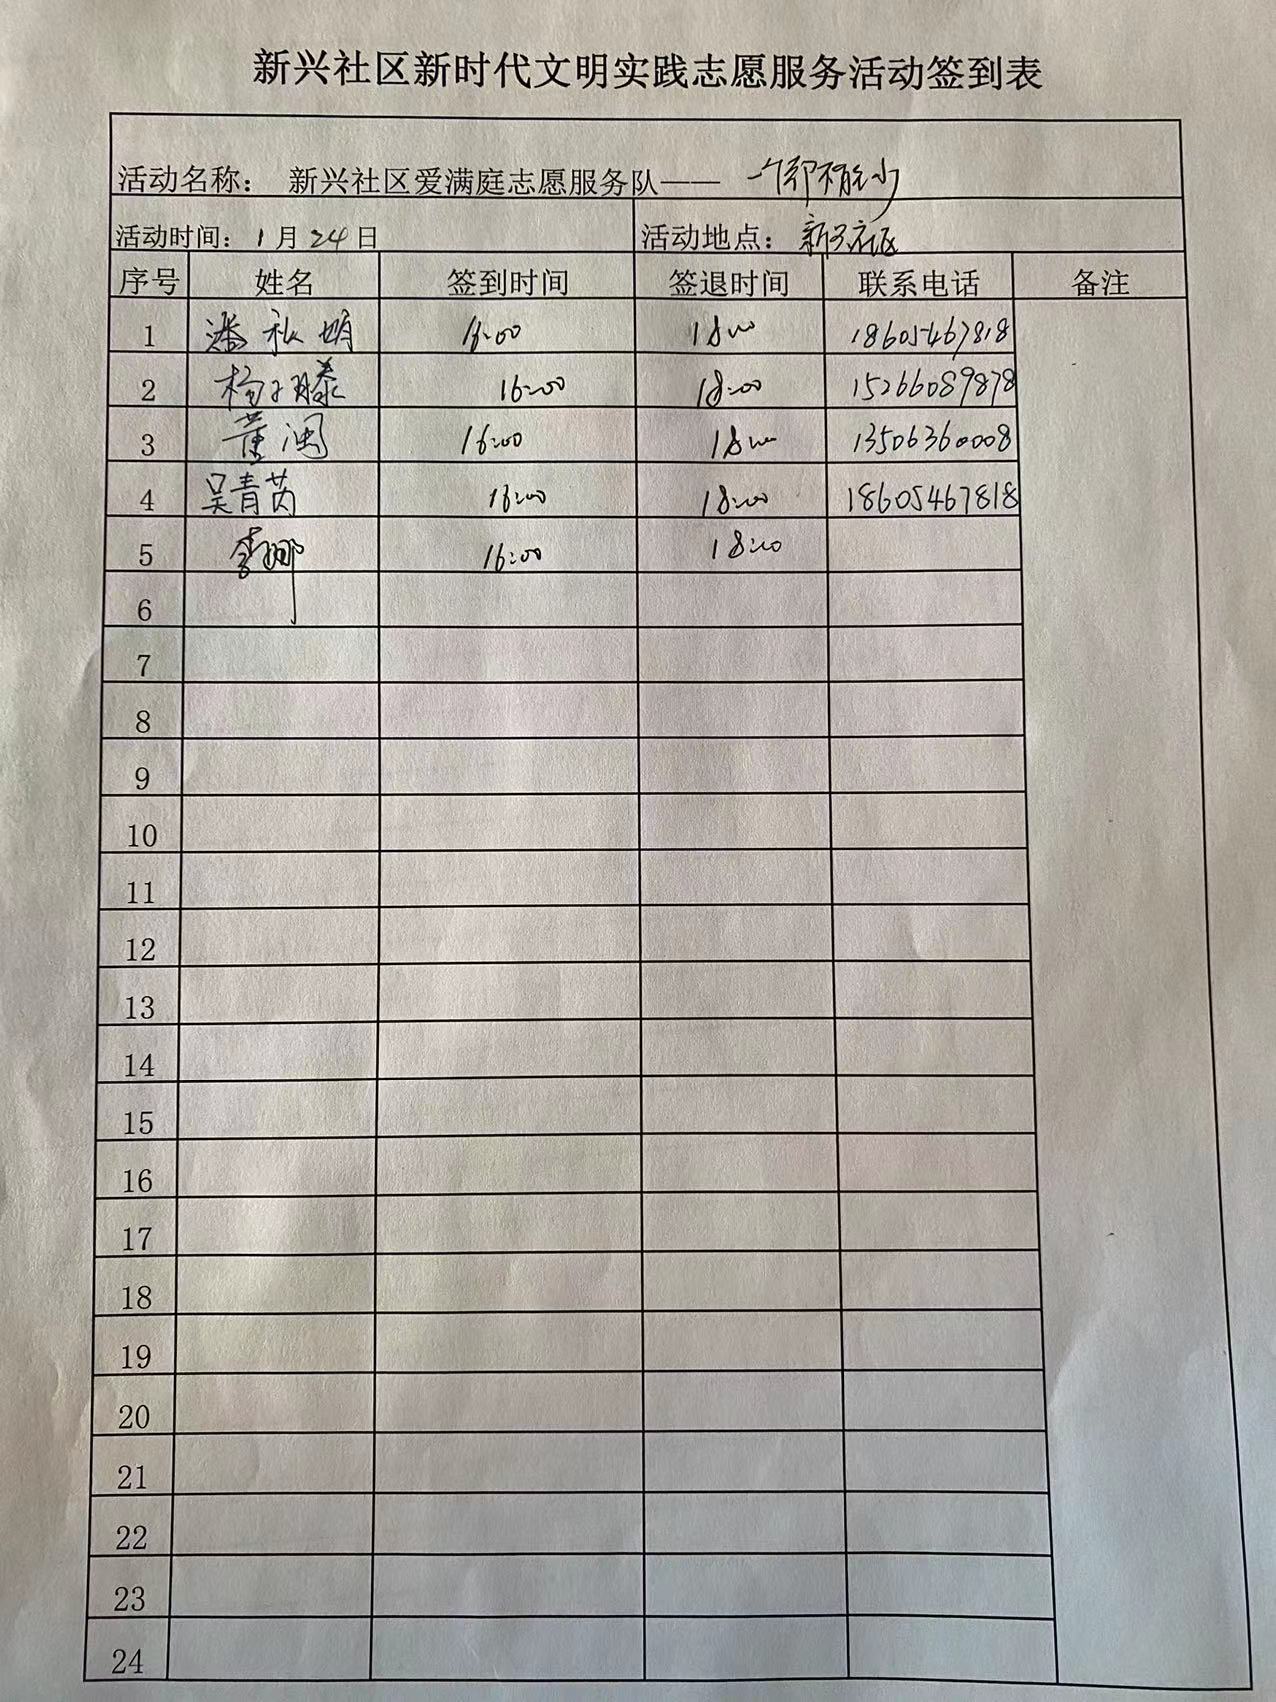 新兴社区新时代文明实践志愿服务活动签到表
活动名称： 新兴社区爱满庭志愿服务队—— 一个都不能少
活动时间：1月24日 活动地点：新兴社区
序号 姓名 签到时间 签退时间 联系电话 备注
1 潘秋明 16:00 18:00 18605467818
2 杨子滕 16:00 18:00 15266089878
3 董闽 16:00 18:00 13506360008
4 吴青芮 16:00 18:00 18605467818
5 李娜 16:00 18:00
6
7
8
9
10
11
12
13
14
15
16
17
18
19
20
21
22
23
24